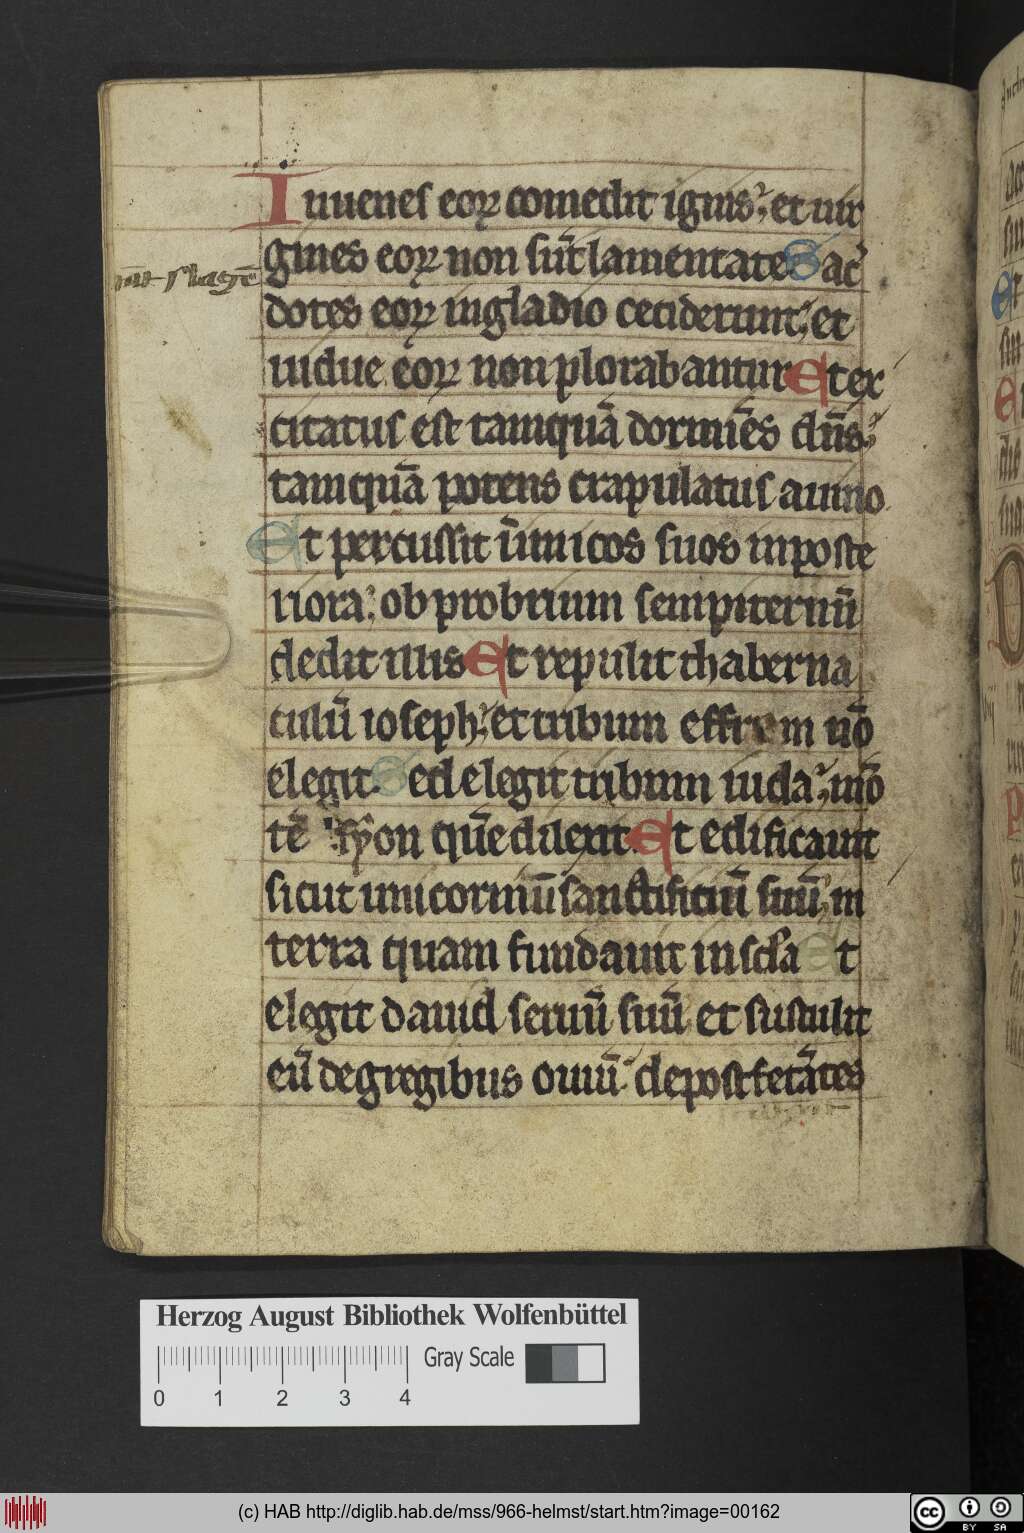 Iuuenes eoꝝ comedit ignis: et uir
gines eoꝝ non sūt lamentate Sac̄
dotes eoꝝ in gladio ceciderunt: et
uidue eoꝝ non plorabantur Et ex
citatus est tamquā dormiēs dn̄s:
tamquā potens crapulatus a uino
Et percussit īnimicos suos in poste
riora: obprobrium sempiternū
dedit illis Et repulit thaberna
culū ioseph: et tribum effrem nō
elegit. Sed elegit tribum iuda: mō
tē syon quē dilexit. Et edificauit
sicut unicorniū sanctificiū suū in
terra quam fundauit in scl̄a Et
elegit dauid seruū suū et sustulit
eū de gregibus ouiū: de post fetātes
Herzog August Bibliothek Wolfenbüttel
Gray Scale
0 1 2 3 4
(c) HAB http://diglib.hab.de/mss/966-helmst/start.htm?image=00162
cc BY SA